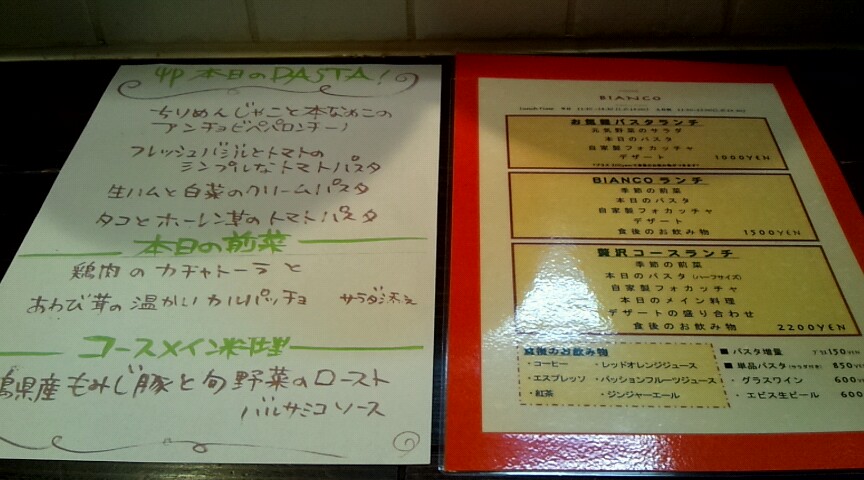 本日のPASTA!
ちりめんじゃこと本なめこの
アンチョビペペロンチーノ
フレッシュバジルとトマトの
シンプルなトマトパスタ
生ハムと白菜のクリームパスタ
タコとホーレン草のトマトパスタ
本日の前菜
鶏肉のカチャトーラと
あわび茸の温かいカルパッチョ サラダ添え
コースメイン料理
県産もみじ豚と旬野菜のロースト
バルサミコソース
BIANCO
お気軽パスタランチ
元気野菜のサラダ
本日のパスタ
自家製フォカッチャ
デザート 1000YEN
BIANCOランチ
季節の前菜
本日のパスタ
自家製フォカッチャ
デザート
食後のお飲み物 1500YEN
贅沢コースランチ
季節の前菜
本日のパスタ(ハーフサイズ)
自家製フォカッチャ
本日のメイン料理
デザートの盛り合わせ
食後のお飲み物 2200YEN
食後のお飲み物
・コーヒー ・レッドオレンジジュース
・エスプレッソ ・パッションフルーツジュース
・紅茶 ・ジンジャーエール
■パスタ増量 プラス150YEN
■単品パスタ(サラダ付き) 850YEN
・グラスワイン 600
・エビス生ビール 600